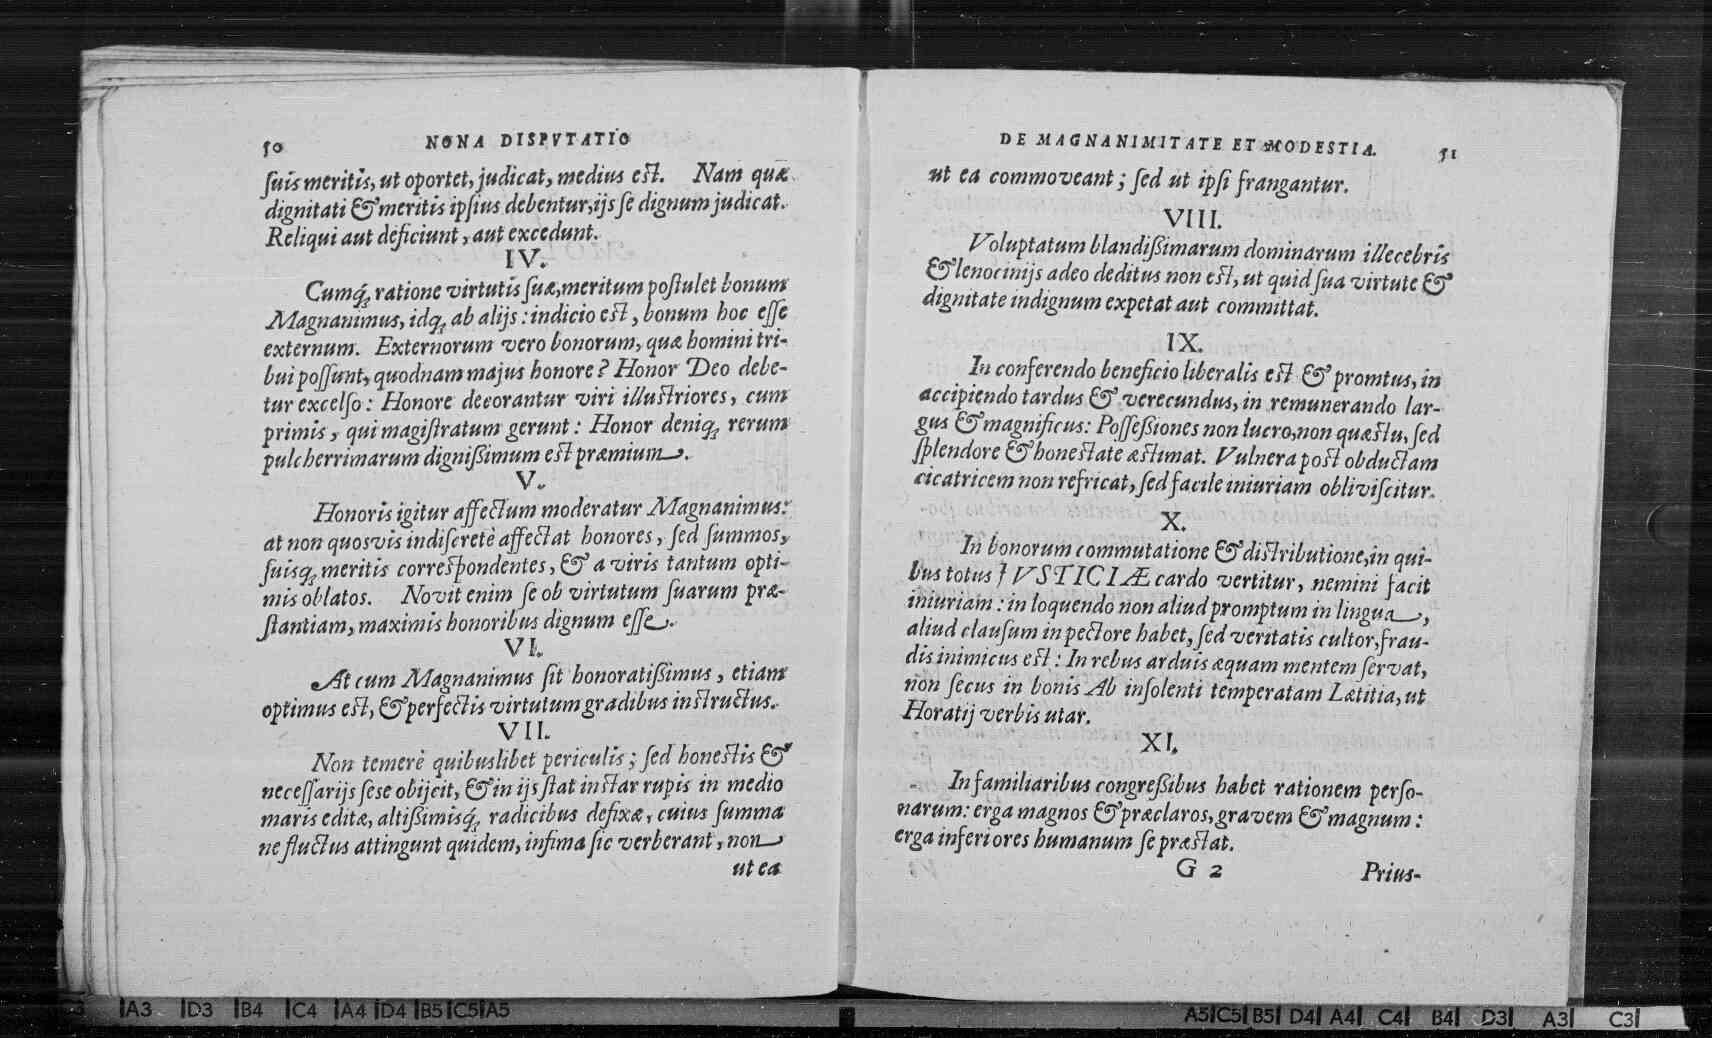 50 NONA DISPVTATIO
ſuis meritis, ut oportet, judicat, medius eſt. Nam quæ
dignitati & meritis ipſius debentur, ijs ſe dignum judicat.
Reliqui aut deficiunt, aut excedunt.
IV.
Cumq́; ratione virtutis ſuæ, meritum poſtulet bonum
Magnanimus, idq; ab alijs: indicio eſt, bonum hoc eſſe
externum. Externorum vero bonorum, quæ homini tri-
bui poſſunt, quodnam majus honore? Honor Deo debe-
tur excelſo: Honore decorantur viri illuſtriores, cum
primis, qui magiſtratum gerunt: Honor deniq; rerum
pulcherrimarum digniſsimum eſt præmium.
V.
Honoris igitur affectum moderatur Magnanimus:
at non quosvis indiſcretè affectat honores, ſed ſummos,
ſuisq; meritis correſpondentes, & a viris tantum opti-
mis oblatos. Novit enim ſe ob virtutum ſuarum præ-
ſtantiam, maximis honoribus dignum eſſe.
VI.
At cum Magnanimus ſit honoratiſsimus, etiam
optimus eſt, & perfectis virtutum gradibus inſtructus.
VII.
Non temerè quibuslibet periculis; ſed honeſtis &
neceſſarijs ſese obijcit, & in ijs ſtat inſtar rupis in medio
maris editæ, altiſsimisq́; radicibus defixæ, cuius ſumma
ne fluctus attingunt quidem, infima ſic verberant, non
ut ea
DE MAGNANIMITATE ET MODESTIA. 51
ut ea commoveant; ſed ut ipſi frangantur.
VIII.
Voluptatum blandiſsimarum dominarum illecebris
& lenocinijs adeo deditus non eſt, ut quid ſua virtute &
dignitate indignum expetat aut committat.
IX.
In conferendo beneficio liberalis eſt & promtus, in
accipiendo tardus & verecundus, in remunerando lar-
gus & magnificus: Poſſeſsiones non lucro, non quæſtu, ſed
ſplendore & honeſtate æſtimat. Vulnera poſt obductam
cicatricem non refricat, ſed facile iniuriam obliviſcitur.
X.
In bonorum commutatione & diſtributione, in qui-
bus totus IVSTICIÆ cardo vertitur, nemini facit
iniuriam: in loquendo non aliud promptum in lingua,
aliud clauſum in pectore habet, ſed veritatis cultor, frau-
dis inimicus eſt: In rebus arduis æquam mentem ſervat,
non ſecus in bonis Ab inſolenti temperatam Lætitia, ut
Horatij verbis utar.
XI.
In familiaribus congreſsibus habet rationem perſo-
narum: erga magnos & præclaros, gravem & magnum:
erga inferiores humanum ſe præſtat.
G 2 Prius-
A3 D3 B4 C4 A4 D4 B5 C5 A5
A5 C5 B5 D4 A4 C4 B4 D3 A3 C3